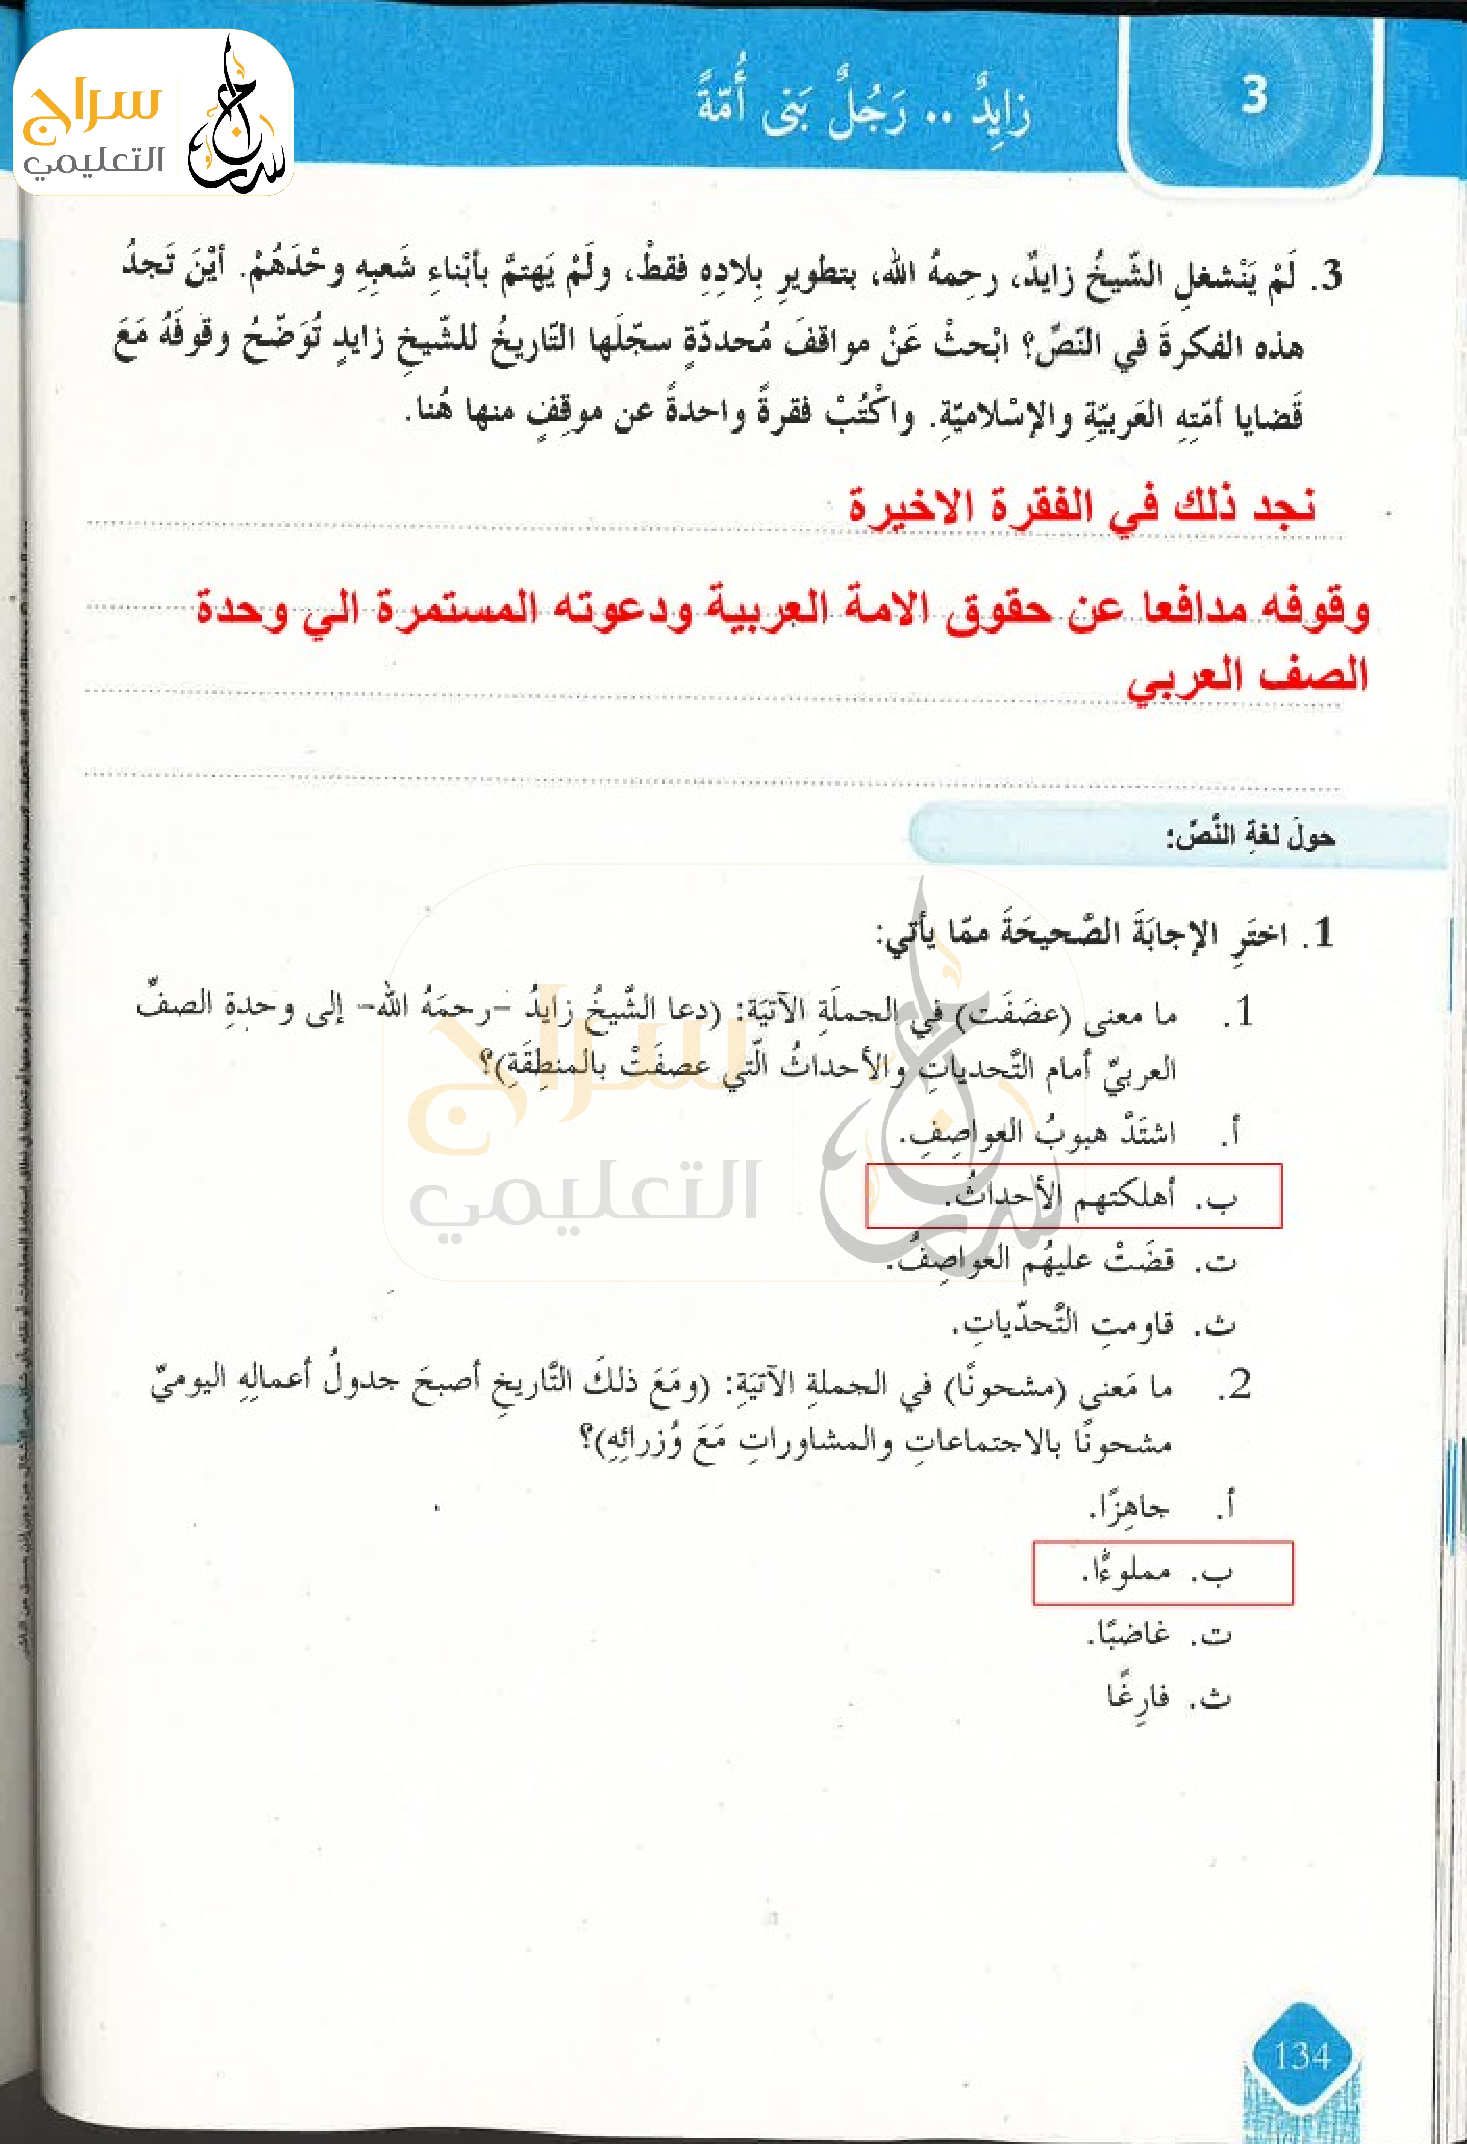 سراج
التعليمي
3
زايِدٌ .. رَجُلٌ بَنى أُمّةً
3. لَمْ يَنْشغلِ الشّيخُ زايدٌ، رحِمهُ الله، بتطويرِ بِلادِهِ فقطْ، ولَمْ يَهتمَّ بأبْناءِ شَعبِهِ وحْدَهُمْ. أيْنَ تَجدُ
هذه الفكرةَ في النّصِّ؟ ابْحثْ عَنْ مواقفَ مُحددّةٍ سجّلَها التّاريخُ للشّيخِ زايدٍ تُوَضّحُ وقوفَهُ مَعَ
قَضايا أمّتِهِ العَربيّةِ والإسْلاميّةِ. واكْتُبْ فقرةً واحدةً عن موقِفٍ منها هُنا.
نجد ذلك في الفقرة الاخيرة
وقوفه مدافعا عن حقوق الامة العربية ودعوته المستمرة الي وحدة
الصف العربي
حولَ لغةِ النَّصِّ:
1. اختَرِ الإجابَةَ الصَّحيحَةَ ممّا يأتي:
1. ما معنى (عصَفَت) في الجملَةِ الآتيَة: (دعا الشَّيخُ زايدُ -رحمَهُ الله- إلى وحدةِ الصفِّ
العربيِّ أمام التَّحدياتِ والأحداثُ الّتي عصفَتْ بالمنطِقَةِ)؟
أ. اشتَدَّ هبوبُ العواصِفِ.
ب. أهلكتهم الأحداثُ.
ت. قضَتْ عليهُم العواصِفُ.
ث. قاومتِ التَّحدّياتِ.
2. ما مَعنى (مشحونًا) في الجملةِ الآتيَةِ: (ومَعَ ذلكَ التَّاريخِ أصبحَ جدولُ أعمالِهِ اليوميّ
مشحونًا بالاجتماعاتِ والمشاوراتِ مَعَ وُزرائِهِ)؟
أ. جاهِزًا.
ب. مملوءًا.
ت. غاضبًا.
ث. فارِغًا
سراج
التعليمي
134